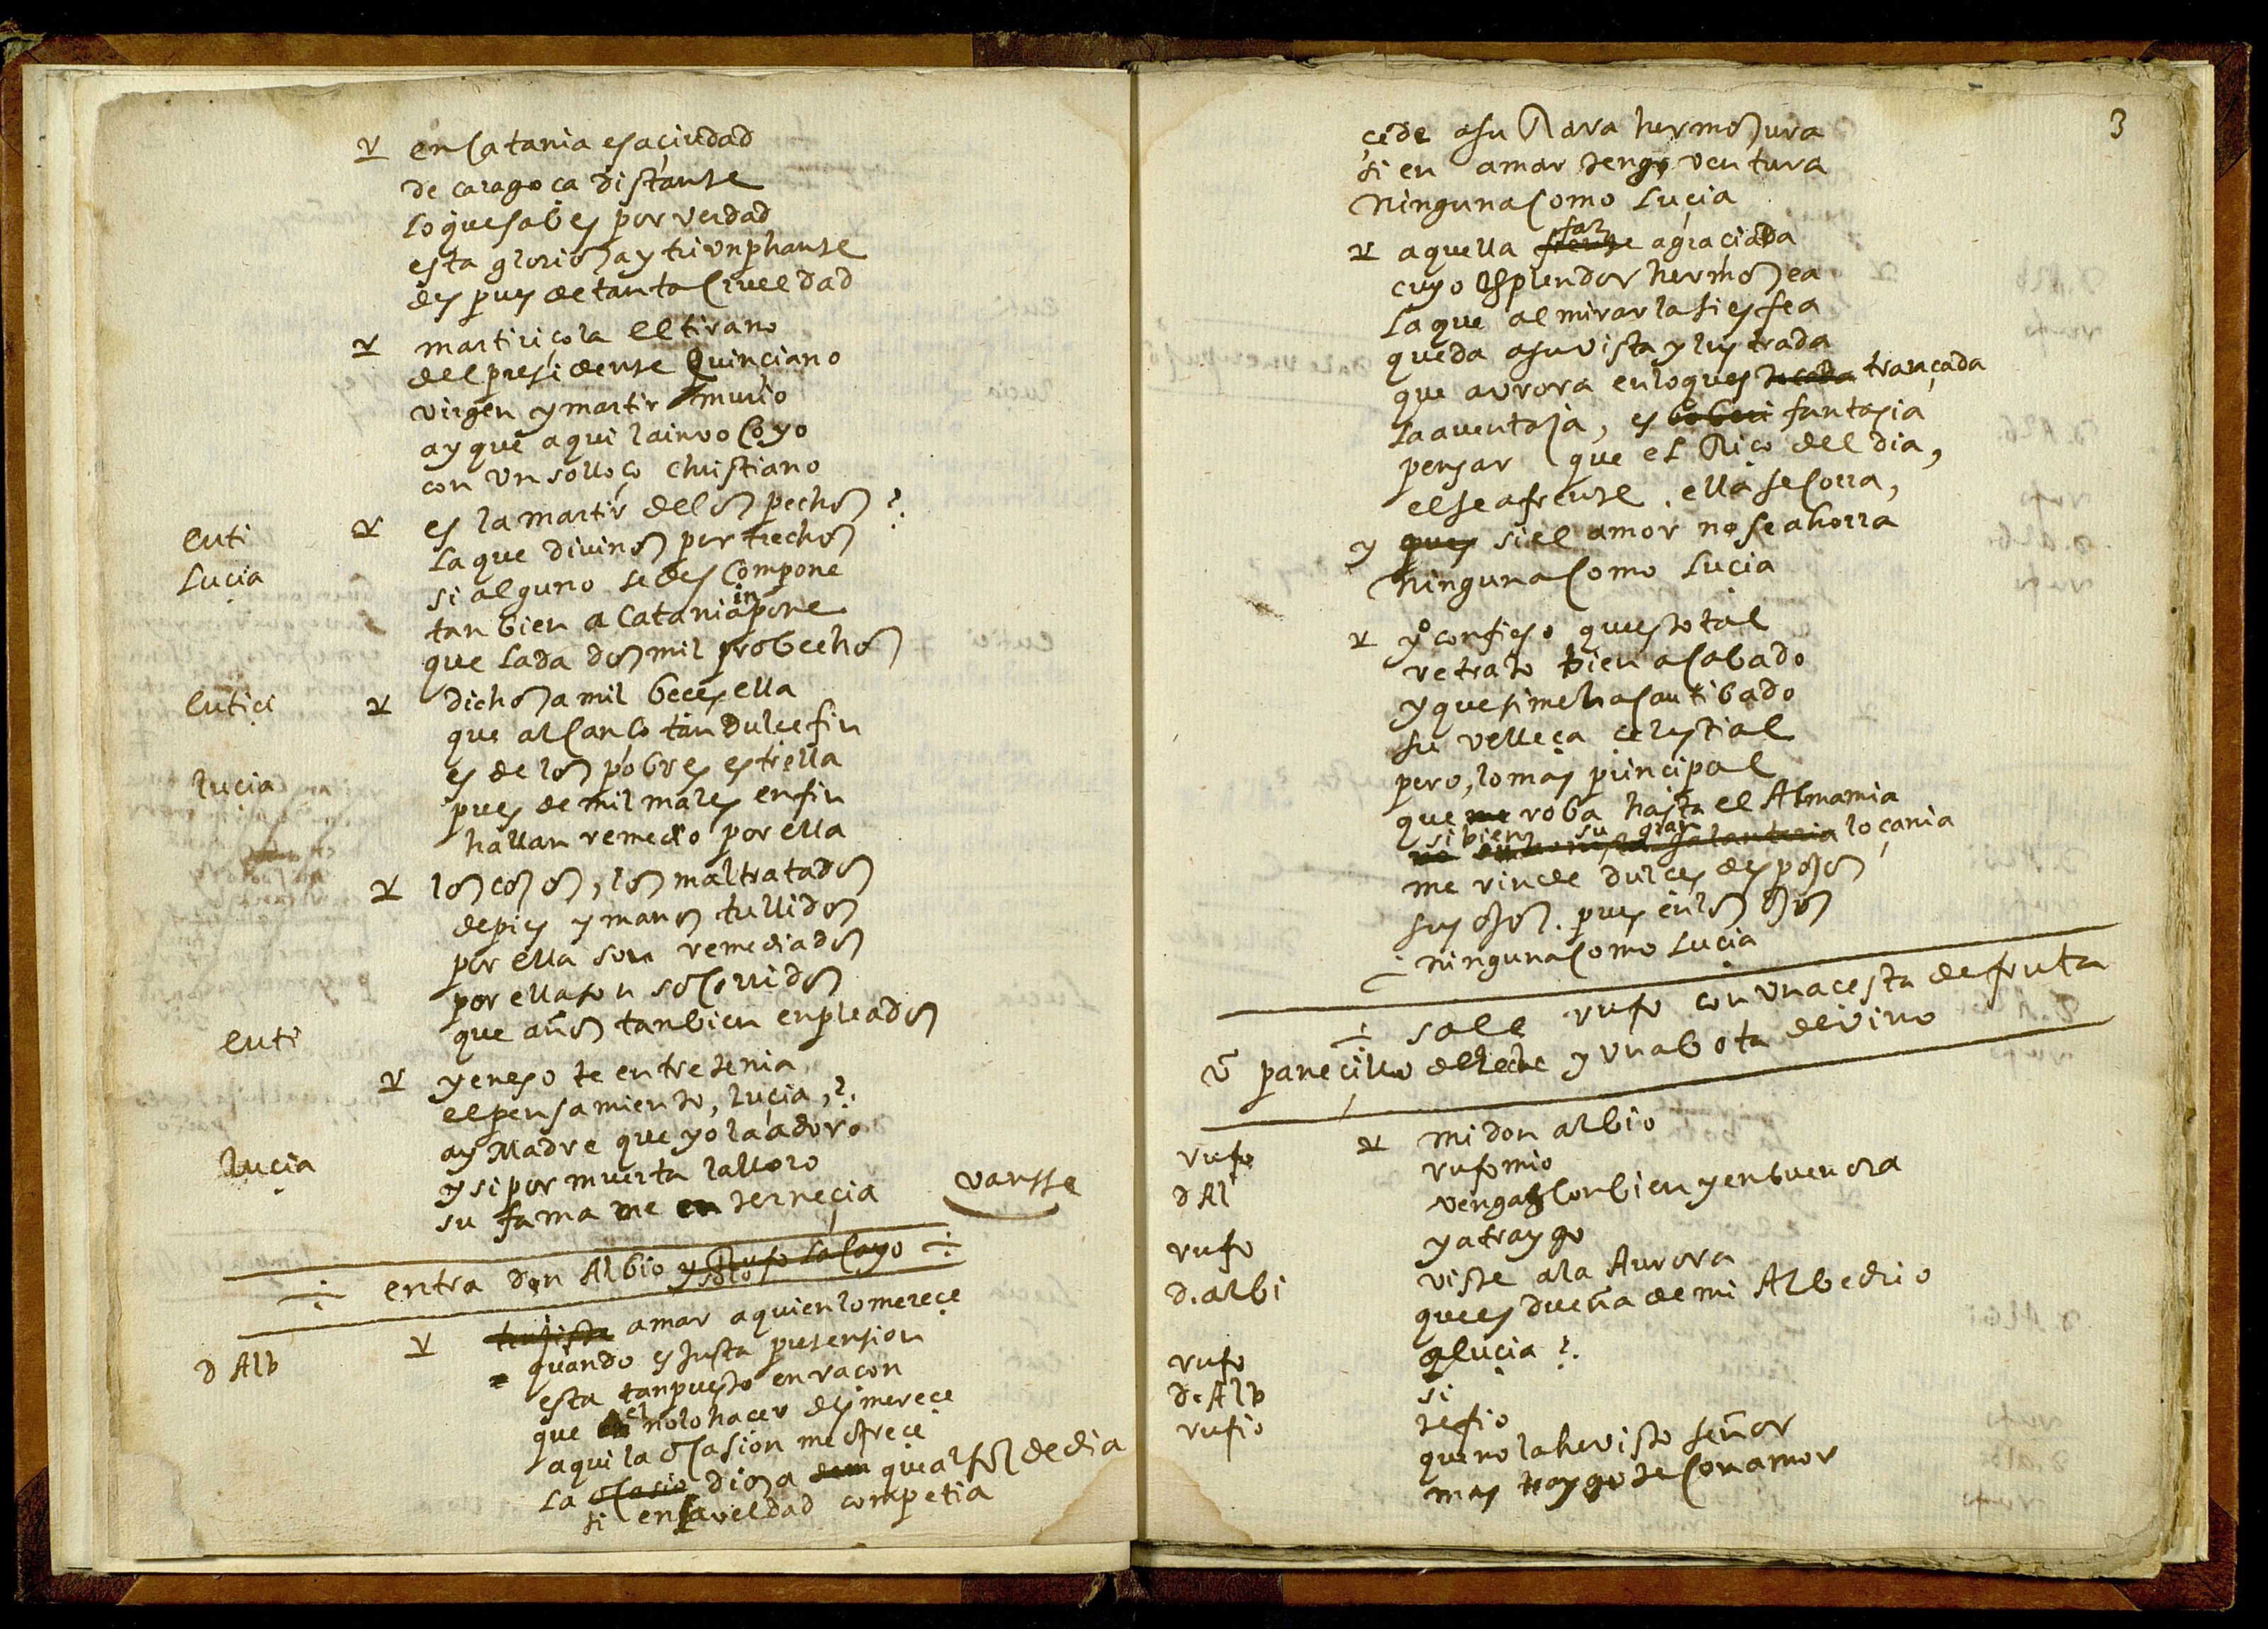 en Catania esa çiudad
de caragoça distante
lo que sabes por verdad
esta glorioza y triunphante
des pues de tanta Crueldad
martiriçola el tirano
del presidente Quinciano
virgen y martir murio
ay que aqui la invoco yo
con un solloço christiano
Euti es la martir de los pechos?
Lucia la que divinos pertrechos
si alguno se des compone
tan bien a Catania inpone
que la da dos mil probechos
Eutici dichoza mil beces ella
que alcanço tan dulce fin
lucia es de los pobres estrella
pues de mil males en fin
hallan remedio por ella
los cojos, los maltratados
de pies y manos tullidos
por ella son remediados
por ella son socorridos
que años tanbien enpleados
Euti y en eso te entretenia
el pensamiento, lucia,?
ay Madre que yo la adoro
lucia y si por muerta la lloro
su fama me enterneçia vansse
entra don Albio y Rufo lacayo
solo
d Alb amar a quien lo mereçe
quando es justa pretension
esta tan puesto en raçon
que el no lo hacer desmereçe
aqui la ocasion me ofreçe
la ocasio diosa que al sol de dia
si en la veldad competia
3
çede a su Rara hermozura
si en amar tengo ventura
Ninguna Como Luçia
aquella frente faz agraçiada
cuyo esplendor hermozea
la que al mirarla si es fea
queda a su vista y lustrada
que aurora en lo que es tocada trançada
la aventaja, es fantasia
pensar que el Riço del dia,
el se afrente, ella se Corra,
y pues si el amor no se ahorra
Ninguna Como Lucia
yo confieso que esto tal
retrato bien acabado
y que si me ha Cautibado
su velleça çelestial
pero, lo mas principal
que me roba hasta el Alma mia
si bien su gran galanteria loçania
me rinde dulces despojos
sus ojos. pues en los ojos
ninguna Como Luçia
sale rufo con una cesta de fruta
un paneçillo de leche y una bota de vino
rufo mi don albio
d Al rufo mio
vengas Con bien y en buen ora
rufo ya traygo
d. albi viste a la Aurora
que es dueña de mi Albedrio
rufo a lucia?
d. Alb si
rufio tefio
que no la he visto señor
mas traygote Con amor